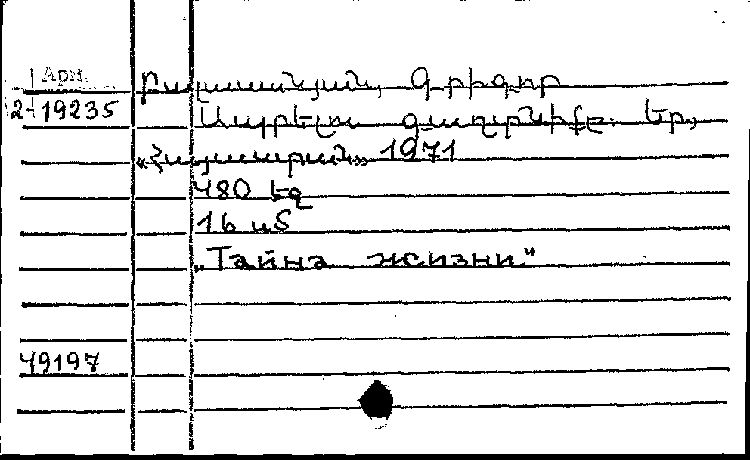 Арм.
Բալասանյան, Գրիգոր
2-19235
Ապրելու գաղտնիքը: Եր.,
«Հայաստան» 1971
480 էջ
16 սմ
„Тайна жизни"
49197